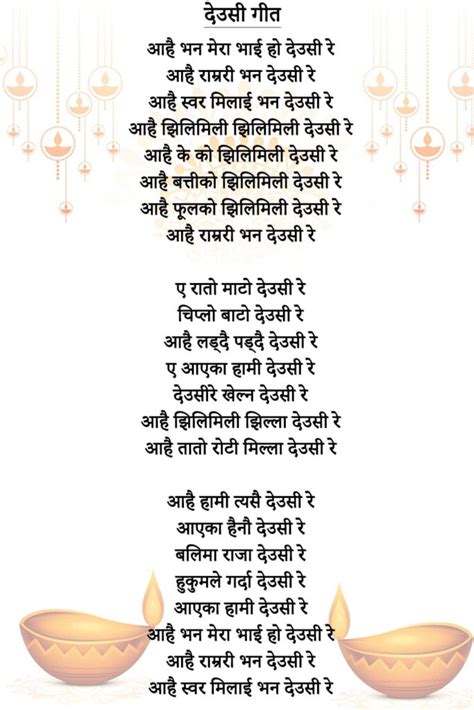 देउसी गीत
आहै भन मेरा भाई हो देउसी रे
आहै राम्ररी भन देउसी रे
आहै स्वर मिलाई भन देउसी रे
आहै झिलिमिली झिलिमिली देउसी रे
आहै के को झिलिमिली देउसी रे
आहै बत्तीको झिलिमिली देउसी रे
आहै फूलको झिलिमिली देउसी रे
आहै राम्ररी भन देउसी रे
ए रातो माटो देउसी रे
चिप्लो बाटो देउसी रे
आहै लड्दै पड्दै देउसी रे
ए आएका हामी देउसी रे
देउसीरे खेल्न देउसी रे
आहै झिलिमिली झिल्ला देउसी रे
आहै तातो रोटी मिल्ला देउसी रे
आहै हामी त्यसै देउसी रे
आएका हैनौ देउसी रे
बलिमा राजा देउसी रे
हुकुमले गर्दा देउसी रे
आएका हामी देउसी रे
आहै भन मेरा भाई हो देउसी रे
आहै राम्ररी भन देउसी रे
आहै स्वर मिलाई भन देउसी रे